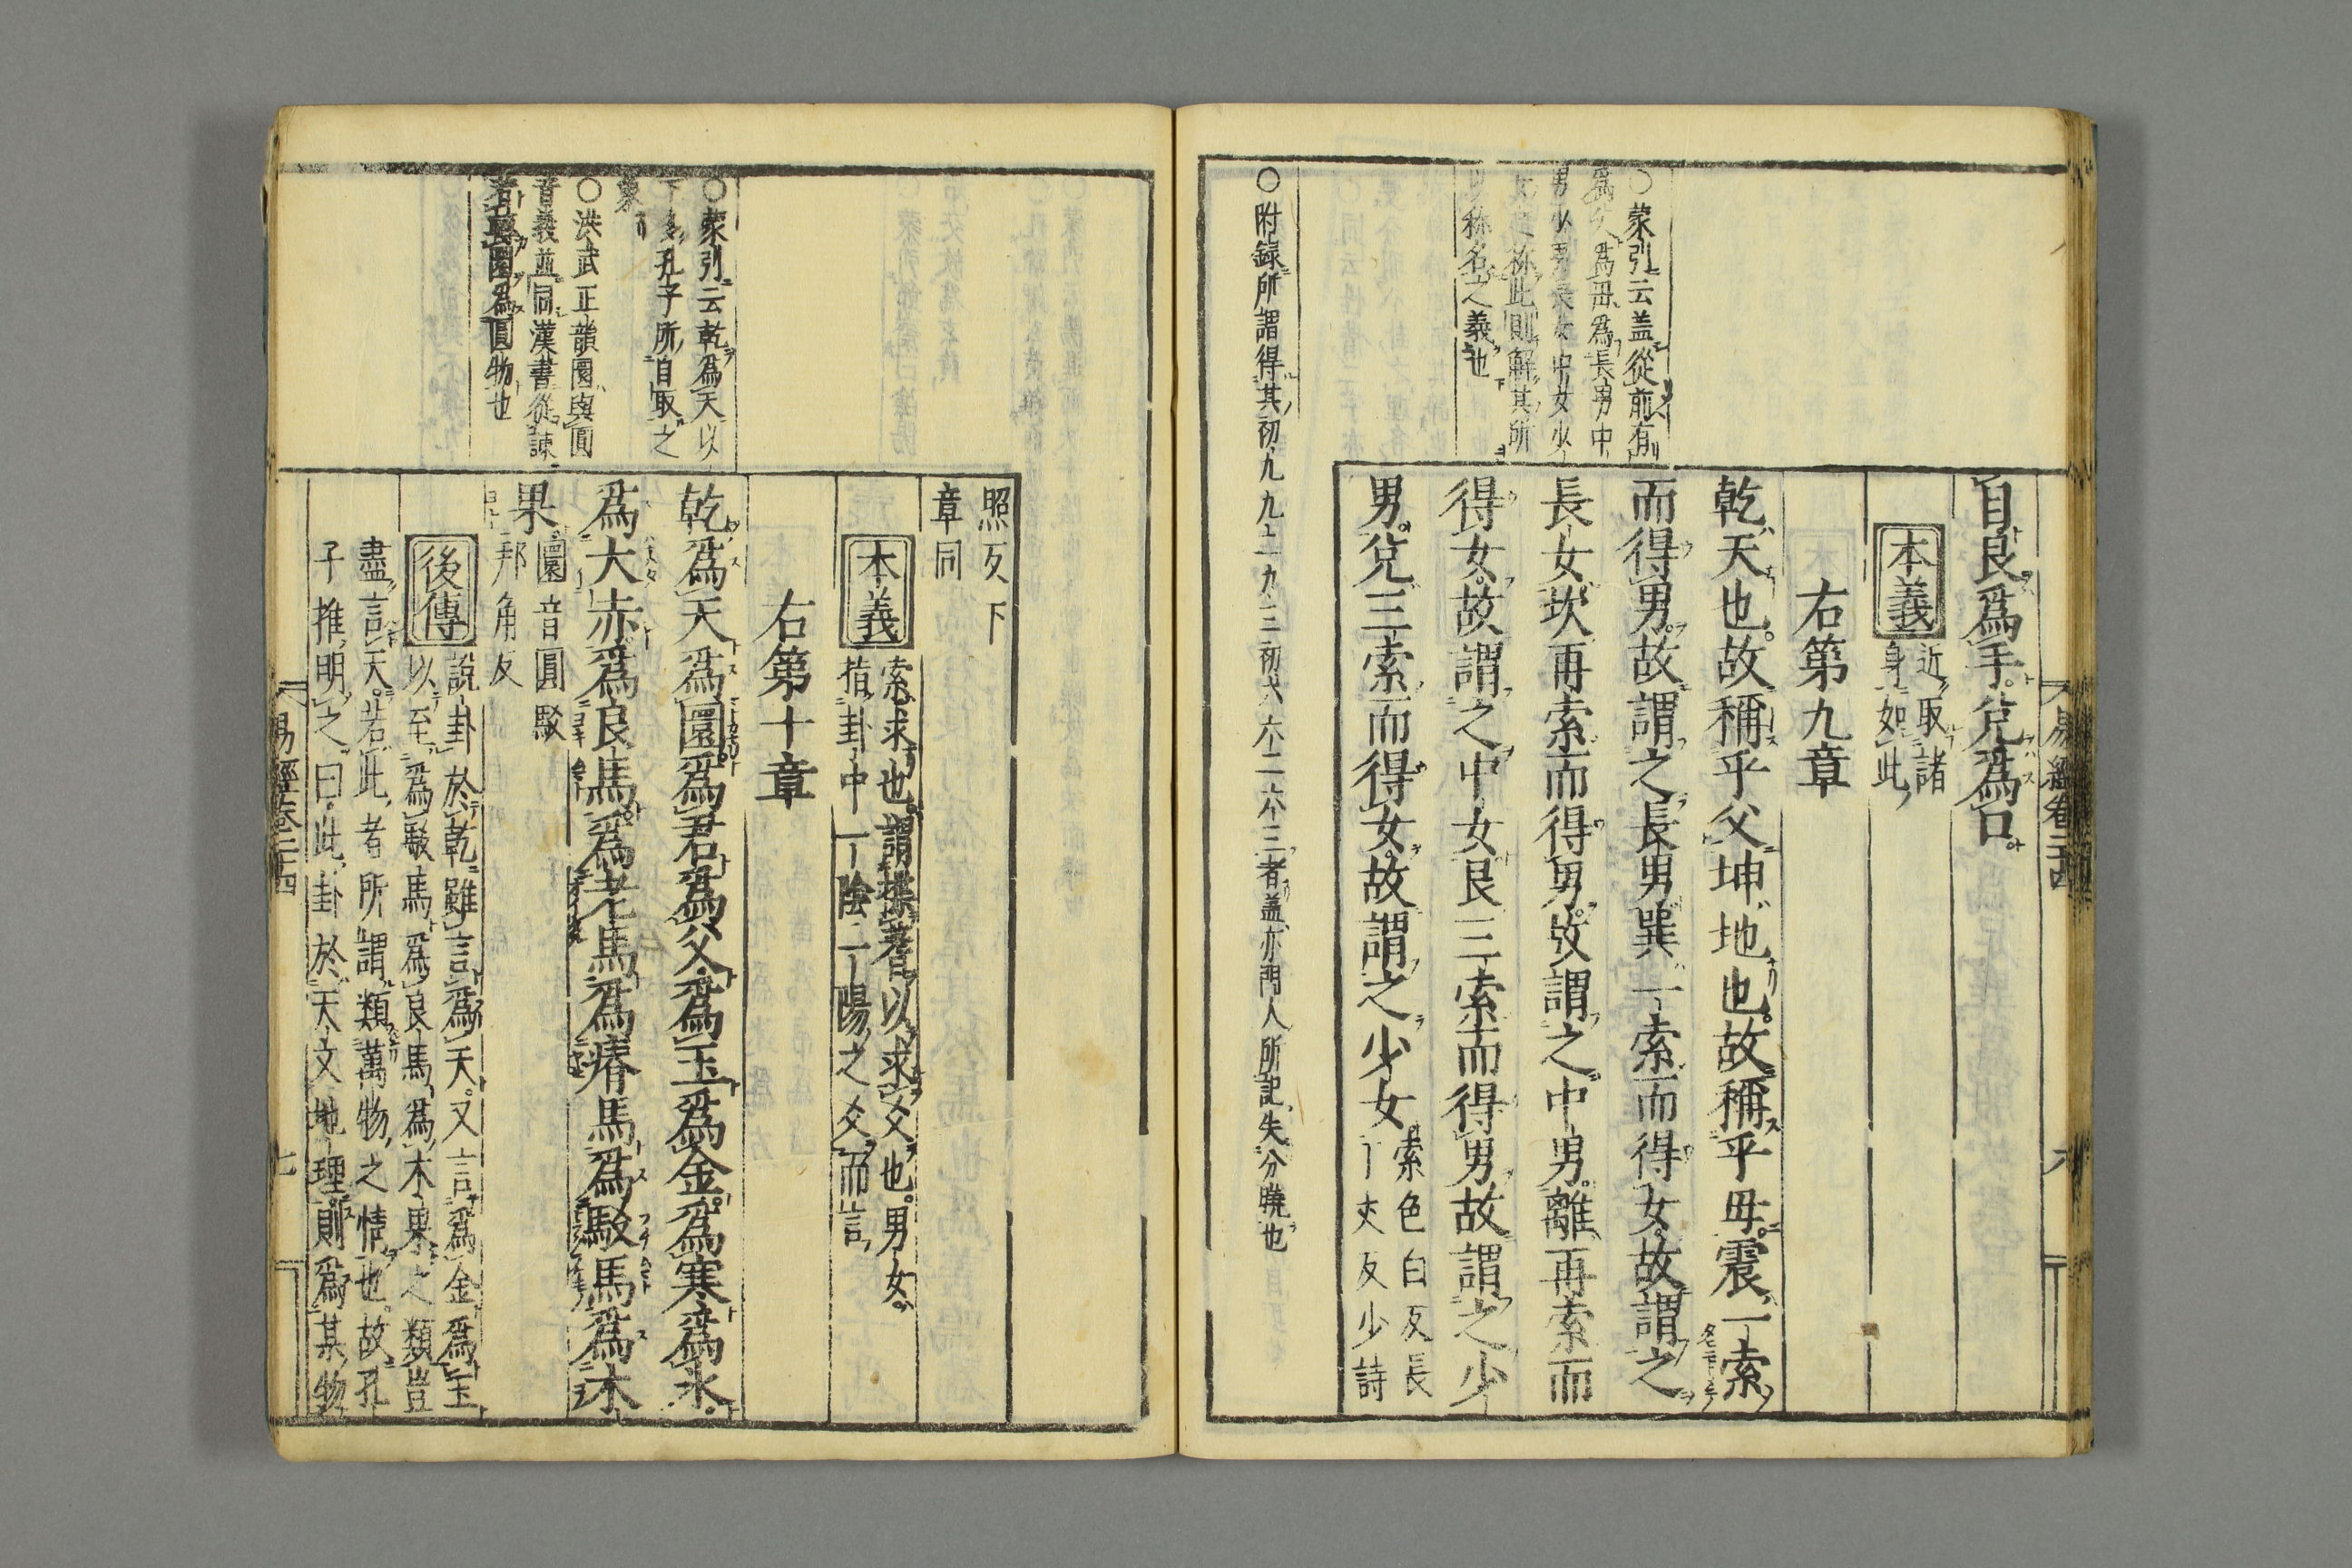 自艮爲手兌爲口
本義
近取諸
身如此
右第九章
乾天也故稱乎父坤地也故稱乎母震一索
而得男故謂之長男巽一索而得女故謂之
長女坎再索而得男故謂之中男離再索而
得女故謂之中女艮三索而得男故謂之少
男兌三索而得女故謂之少女
索色白反長
丁丈反少詩
○蒙引云盖從前有
爲父爲母爲長男中
男少男長女中女少
女之称此則解其所
以称名之義也
○附録所謂得其初九九二九三初六六二六三者盖亦門人所記失分曉也
易經卷二十四
六
照反下
章同
本義
索求也謂揲蓍以求爻也男女
指卦中一陰一陽之爻而言
右第十章
乾爲天爲圜爲君爲父爲玉爲金爲寒爲氷
爲大赤爲良馬爲老馬爲瘠馬爲駁馬爲木
果
圜音圓駁
邦角反
後傳
說卦於乾雖言爲天又言爲金爲玉
以至爲駁馬爲良馬爲木果之類豈
盡言天若此者所謂類萬物之情也故孔
子推明之曰此卦於天文地理則爲某物
○蒙引云乾爲天以
下多孔子所自取之
象
○洪武正韻圜與圓
音義並同漢書從諫
若轉圜爲圓物也
易經卷二十四
七